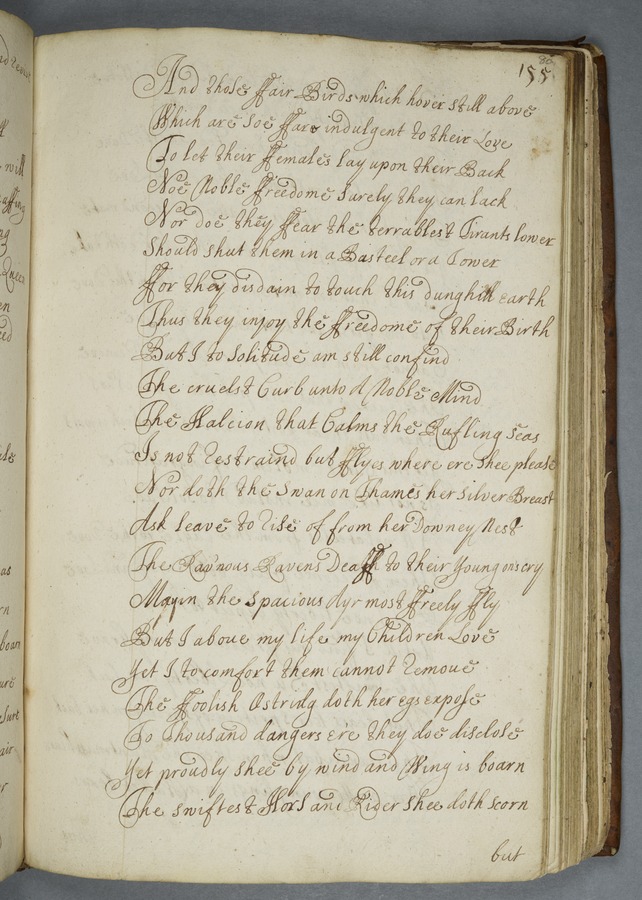 80
155
And those ffair Birds which hover still above
Which are soe ffarr indulgent to their Love
To let their ffemales lay upon their Back
Noe Noble ffreedome surely they can lack
Nor doe they ffear the terrablest Tirants lower
Should shut them in a Basteel or a Tower
ffor they disdain to touch this dunghill earth
Thus they injoy the ffreedome of their Birth
But I to solitude am still confind
The cruelst Curb unto a Noble Mind
The Halcion that Calms the Rufling seas
Is not restraind but fflyes where ere shee please
Nor doth the Swan on Thames her silver Breast
Ask leave to rise of from her Downey Nest
The Rav'nous Ravens Deaff to their Young ons cry
May in the spacious Ayr most ffreely ffly
But I above my life my Children Love
Yet I to comfort them cannot remove
The ffoolish Astridg doth her egs expose
To thousand dangers ere they doe disclose
Yet proudly shee by wind and Wing is boarn
The swiftest Hors and Rider shee doth scorn
but